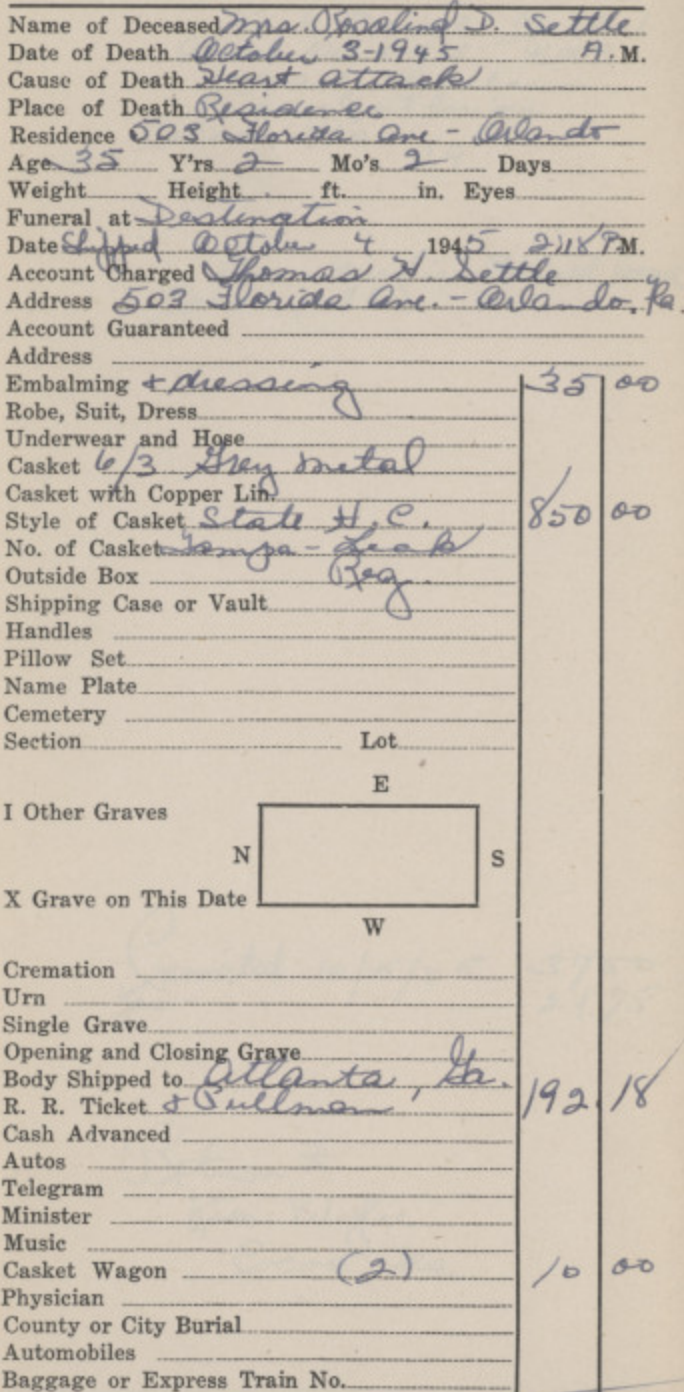 Name of Deceased Mrs. Rosalind D. Settle
Date of Death October 3-1945 A.M.
Cause of Death Heart attack
Place of Death Residence
Residence 503 Florida Ave - Orlando
Age 35 Y'rs 2 Mo's 2 Days
Weight Height ft. in. Eyes
Funeral at Destination
Date Shipped October 4 1945 2:18 P.M.
Account Charged Thomas H. Settle
Address 503 Florida Ave. - Orlando, Fla.
Account Guaranteed
Address
Embalming & dressing 35 00
Robe, Suit, Dress
Underwear and Hose
Casket 6/3 Grey metal
Casket with Copper Lin.
Style of Casket State H.C. 850 00
No. of Casket Tampa -
Outside Box Reg.
Shipping Case or Vault
Handles
Pillow Set
Name Plate
Cemetery
Section Lot
E
I Other Graves
N S
X Grave on This Date
W
Cremation
Urn
Single Grave
Opening and Closing Grave
Body Shipped to Atlanta, Ga.
R. R. Ticket & Pullman 192.18
Cash Advanced
Autos
Telegram
Minister
Music
Casket Wagon (2) 10 00
Physician
County or City Burial
Automobiles
Baggage or Express Train No.